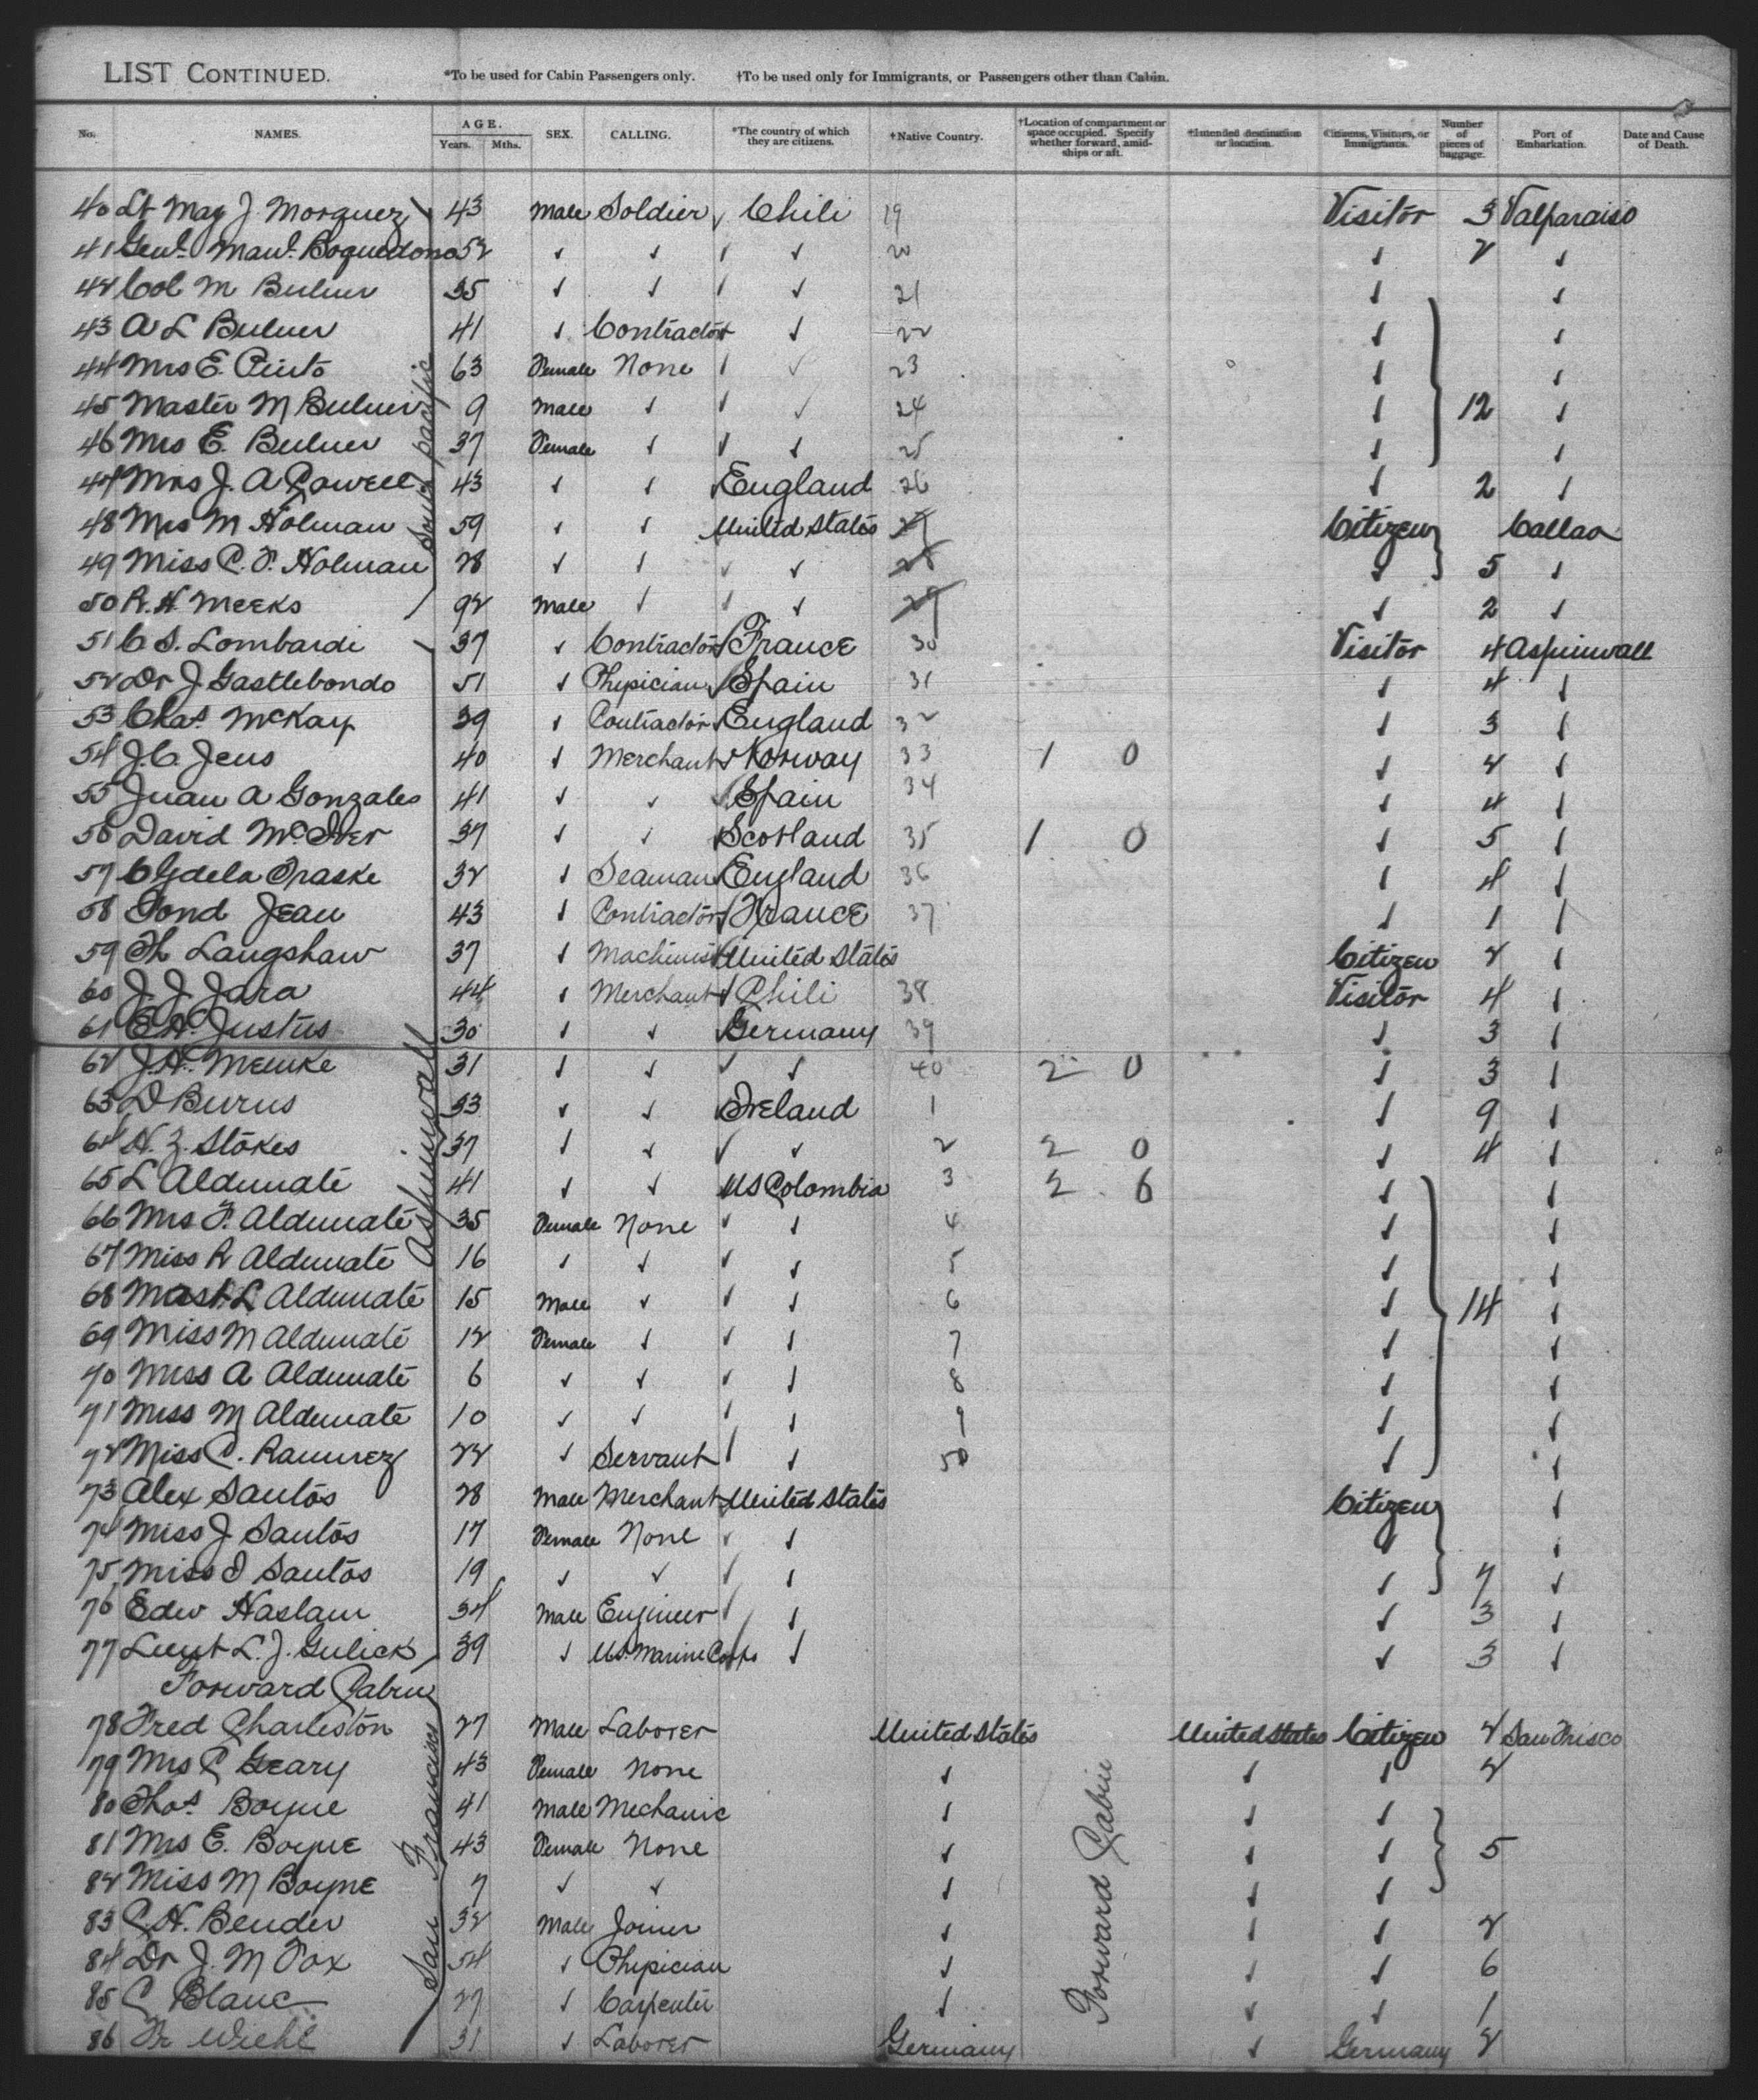 LIST CONTINUED. *To be used for Cabin Passengers only. †To be used only for Immigrants, or Passengers other than Cabin.
No. NAMES. AGE. Years. Mths. SEX. CALLING. *The country of which they are citizens. †Native Country. †Location of compartment or space occupied. Specify whether forward, amidships or aft. †Intended destination or location. Citizens, Visitors, or Immigrants. Number of pieces of baggage. Port of Embarkation. Date and Cause of Death.
40 Lt Maj J. Morquez 43 Male Soldier ✓ Chili 19 Visitor 3 Valparaiso
41 Genl. Manl. Boquedono 52 ✓ ✓ ✓ ✓ 20 ✓ 2 ✓
42 Col M Bulner 35 ✓ ✓ ✓ ✓ 21 ✓ ✓
43 A L Bulner 41 ✓ Contractor ✓ 22 ✓ ✓
44 Mrs E. Pinto 63 Female None ✓ ✓ 23 ✓ ✓
45 Master M Bulner 9 Male ✓ ✓ ✓ 24 ✓ 12 ✓
46 Mrs E. Bulner 37 Female ✓ ✓ ✓ 25 ✓ ✓
47 Mrs J. A Powell 43 ✓ ✓ England 26 ✓ 2 ✓
48 Mrs M Holman 59 ✓ ✓ United States 27 Citizen Callao
49 Miss C. F. Holman 28 ✓ ✓ ✓ ✓ 28 ✓ 5 ✓
50 R. H. Meeks 92 Male ✓ ✓ ✓ 29 ✓ 2 ✓
South pacific
51 C S. Lombardi 37 ✓ Contractor France 30 Visitor 4 Aspinwall
52 Dr J Gastlebondo 51 ✓ Phepician Spain 31 ✓ 4 ✓
53 Chas McKay 39 ✓ Contractor England 32 ✓ 3 ✓
54 J. C. Jens 40 ✓ Merchant ✓ Norway 33 1 0 ✓ 4 ✓
55 Juan A Gonzales 41 ✓ ✓ Spain 34 ✓ 4 ✓
56 David McIver 37 ✓ ✓ Scotland 35 1 0 ✓ 5 ✓
57 Praske 32 ✓ Seaman England 36 ✓ 4 ✓
58 Fond Jean 43 ✓ Contractor France 37 ✓ 1 ✓
59 Th Langshaw 37 ✓ Machinist United States Citizen 2 ✓
60 J. J. Jara 44 ✓ Merchant ✓ Chili 38 Visitor 4 ✓
61 E. H. Justus 30 ✓ ✓ Germany 39 ✓ 3 ✓
62 J. H. Memke 31 ✓ ✓ ✓ ✓ 40 2 0 ✓ 3 ✓
63 D Burns 33 ✓ ✓ Ireland 1 ✓ 9 ✓
64 H. Z. Stokes 37 ✓ ✓ ✓ ✓ 2 2 0 ✓ 4 ✓
65 L Aldunate 41 ✓ ✓ US Colombia 3 2 6 ✓ ✓
66 Mrs F. Aldunate 35 Female None ✓ ✓ 4 ✓ ✓
67 Miss R Aldunate 16 ✓ ✓ ✓ ✓ 5 ✓ ✓
68 Mast. L Aldunate 15 Male ✓ ✓ ✓ 6 ✓ 14 ✓
69 Miss M Aldunate 12 Female ✓ ✓ ✓ 7 ✓ ✓
70 Miss A Aldunate 6 ✓ ✓ ✓ ✓ 8 ✓ ✓
71 Miss M Aldunate 10 ✓ ✓ ✓ ✓ 9 ✓ ✓
72 Miss C. Ramirez 22 ✓ Servant ✓ ✓ 50 ✓ ✓
73 Alex Santos 28 Male Merchant United States Citizen ✓
74 Miss J Santos 17 Female None ✓ ✓ ✓ ✓
75 Miss I Santos 19 ✓ ✓ ✓ ✓ ✓ 7 ✓
76 Edw Haslam 34 Male Engineer ✓ ✓ ✓ 3 ✓
77 Lieut L. J. Gulick 39 ✓ US Marine Corps ✓ ✓ 3 ✓
Aspinwall
Forward Cabin
78 Fred Charleston 27 Male Laborer United States United States Citizen 2 San Frisco
79 Mrs C Geary 43 Female None ✓ ✓ ✓ 2
80 Thos Boyne 41 Male Mechanic ✓ ✓ ✓
81 Mrs E. Boyne 43 Female None ✓ ✓ ✓ 5
82 Miss M Boyne 7 ✓ ✓ ✓ ✓ ✓
83 C. H. Bender 32 Male Joiner ✓ ✓ ✓ 2
84 Dr J. M Fox 54 ✓ Phepician ✓ ✓ ✓ 6
85 C Blanc 27 ✓ Carpenter ✓ ✓ ✓ 1
86 Fr Wiehl 31 ✓ Laborer Germany ✓ Germany 2
San Francisco
Forward Cabin